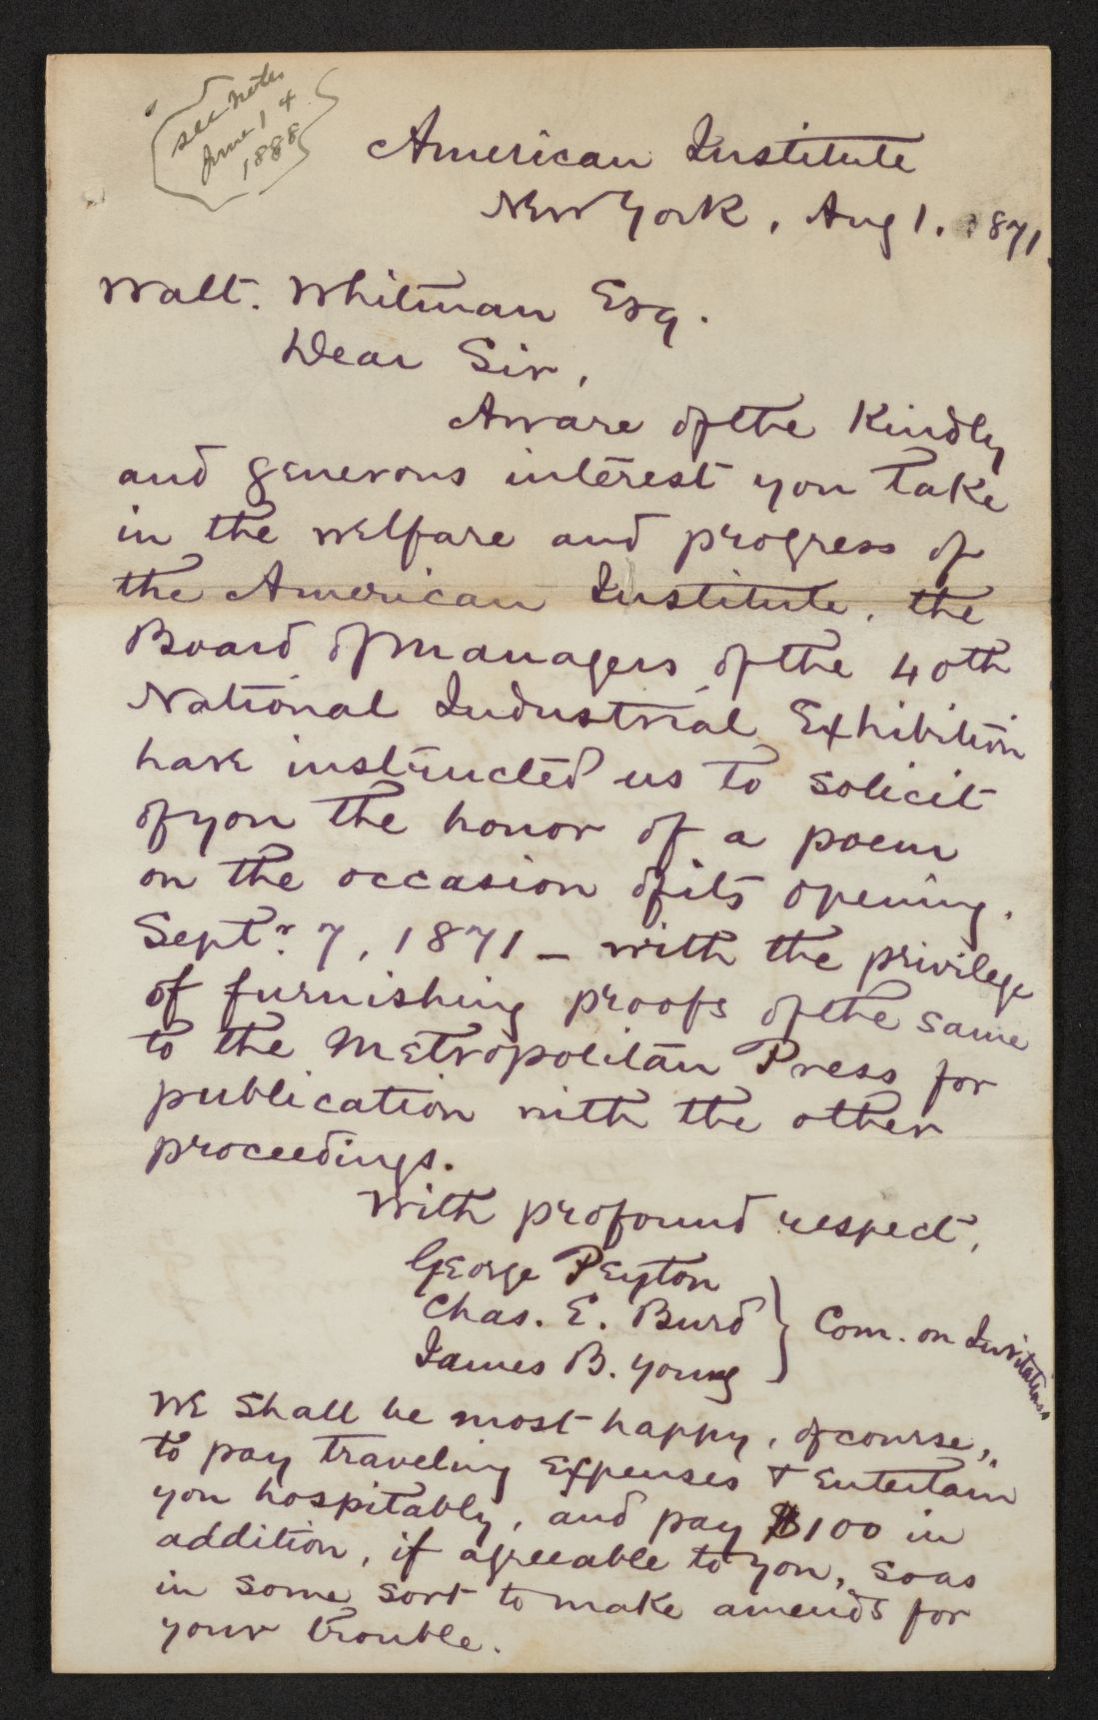 see notes
June 14
1888
American Institute
New York, Aug 1. 1871.
Walt. Whitman Esq.
Dear Sir,
Aware of the kindly
and generous interest you take
in the welfare and progress of
the American Institute, the
Board of Managers of the 40th
National Industrial Exhibition
have instructed us to solicit
of you the honor of a poem
on the occasion of its opening,
Septr. 7, 1871 – with the privilege
of furnishing proofs of the same
to the Metropolitan Press for
publication with the other
proceedings.
With profound respect,
George Peyton
Chas. E. Burd } Com. on Invitations
James B. Young
We shall be most happy, of course,
to pay traveling expenses & entertain
you hospitably, and pay $100 in
addition, if agreeable to you, so as
in some sort to make amends for
your trouble.